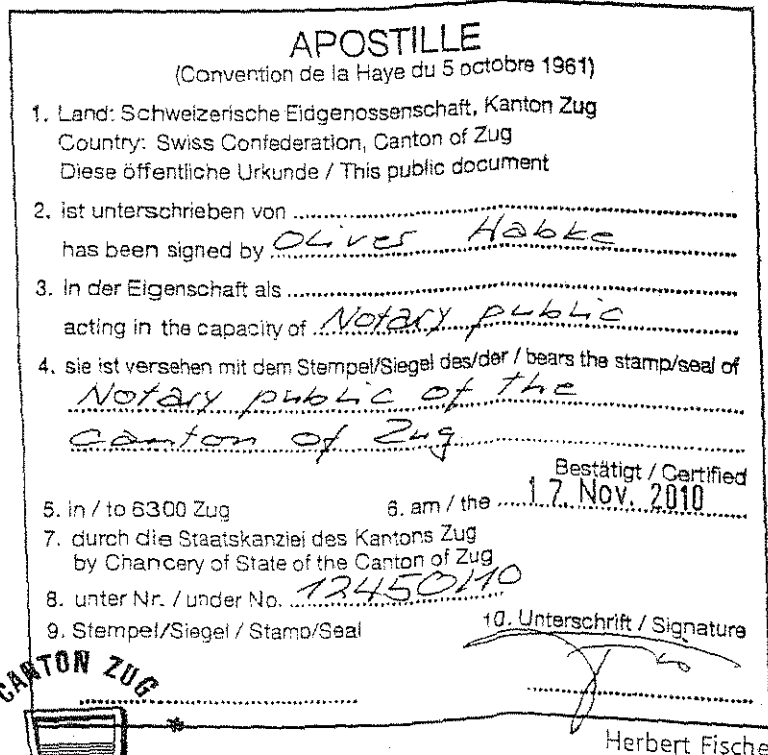 APOSTILLE
(Convention de la Haye du 5 octobre 1961)
1. Land: Schweizerische Eidgenossenschaft, Kanton Zug
Country: Swiss Confederation, Canton of Zug
Diese öffentliche Urkunde / This public document
2. ist unterschrieben von
has been signed by Oliver Habke
3. in der Eigenschaft als
acting in the capacity of Notary public
4. sie ist versehen mit dem Stempel/Siegel des/der / bears the stamp/seal of
Notary public of the
Canton of Zug
Bestätigt / Certified
5. in / to 6300 Zug 6. am / the 17. Nov. 2010
7. durch die Staatskanzlei des Kantons Zug
by Chancery of State of the Canton of Zug
8. unter Nr. / under No. 12450/10
9. Stempel/Siegel / Stamp/Seal 10. Unterschrift / Signature
CANTON ZUG
Herbert Fische